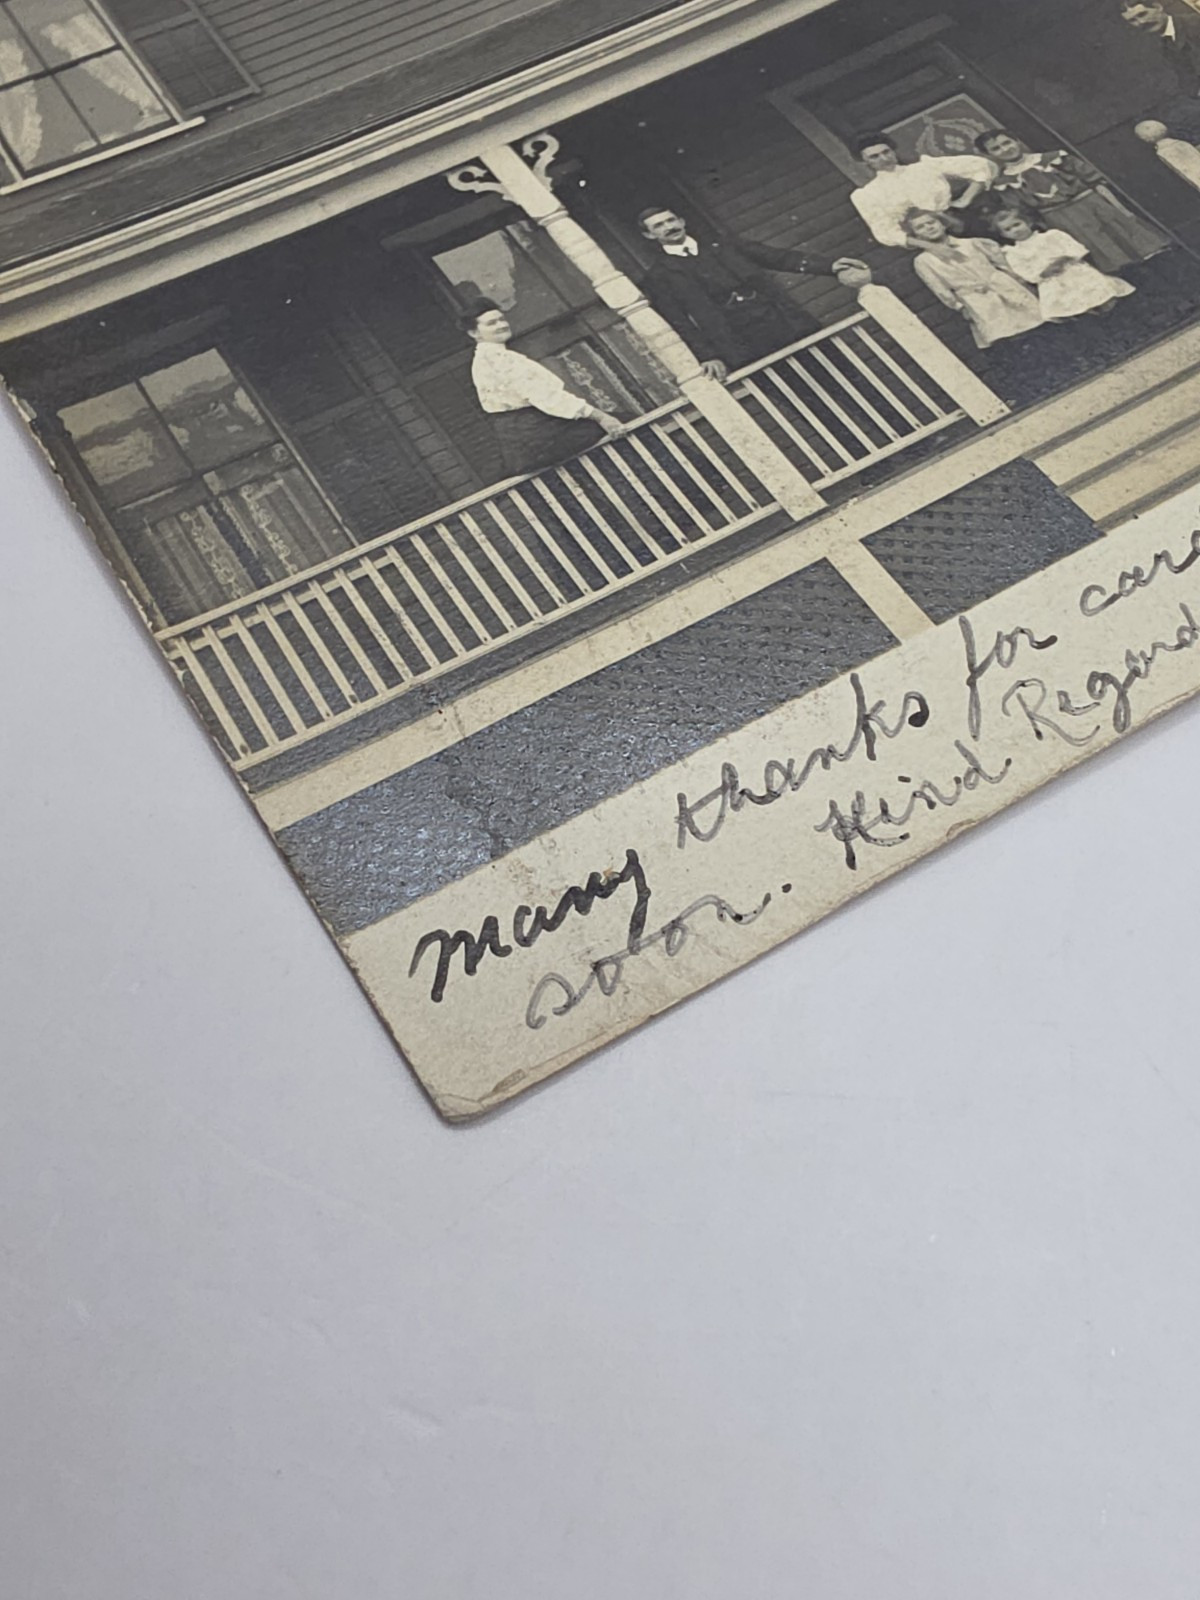 Many thanks for card
soon. Kind Regard